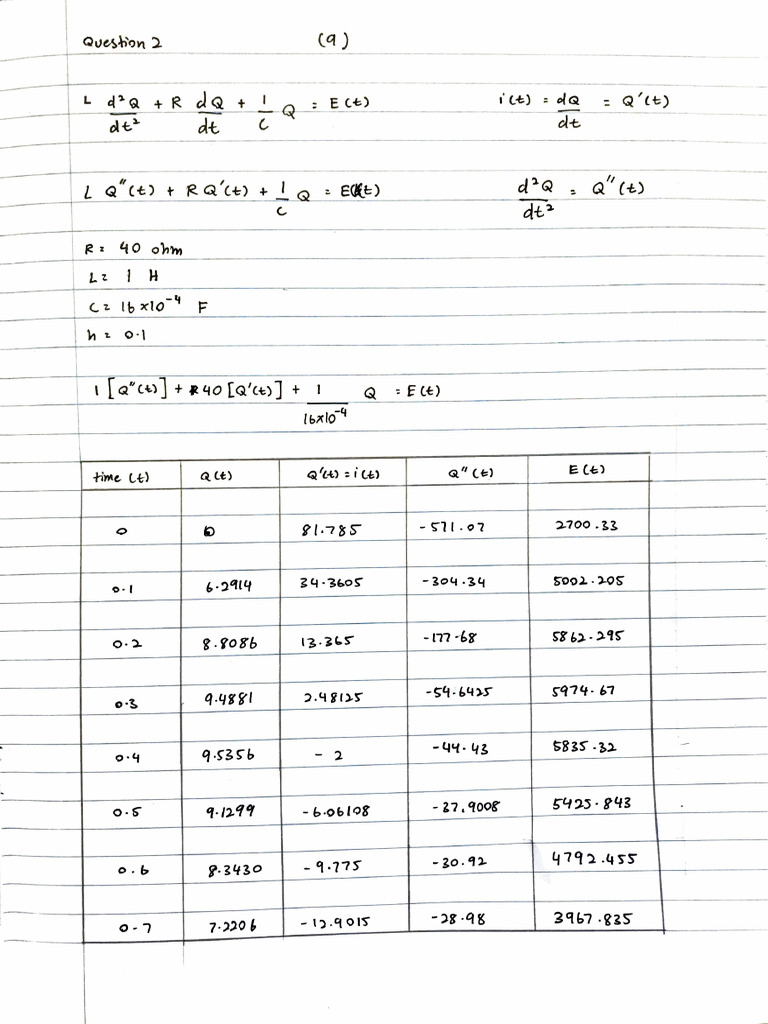 Question 2 (a)
L d²Q/dt² + R dQ/dt + 1/C Q = E(t) i(t) = dQ/dt = Q'(t)
L Q''(t) + R Q'(t) + 1/C Q = E(t) d²Q/dt² = Q''(t)
R = 40 ohm
L = 1 H
C = 16×10⁻⁴ F
h = 0.1
1 [Q''(t)] + 40 [Q'(t)] + 1/16×10⁻⁴ Q = E(t)
time (t) Q(t) Q'(t) = i(t) Q''(t) E(t)
0 0 81.785 -571.07 2700.33
0.1 6.2914 34.3605 -304.34 5002.205
0.2 8.8086 13.365 -177.68 5862.295
0.3 9.4881 2.48125 -54.6425 5974.67
0.4 9.5356 -2 -44.43 5835.32
0.5 9.1299 -6.06108 -37.9008 5425.843
0.6 8.3430 -9.775 -30.92 4792.455
0.7 7.2206 -12.9015 -28.98 3967.835